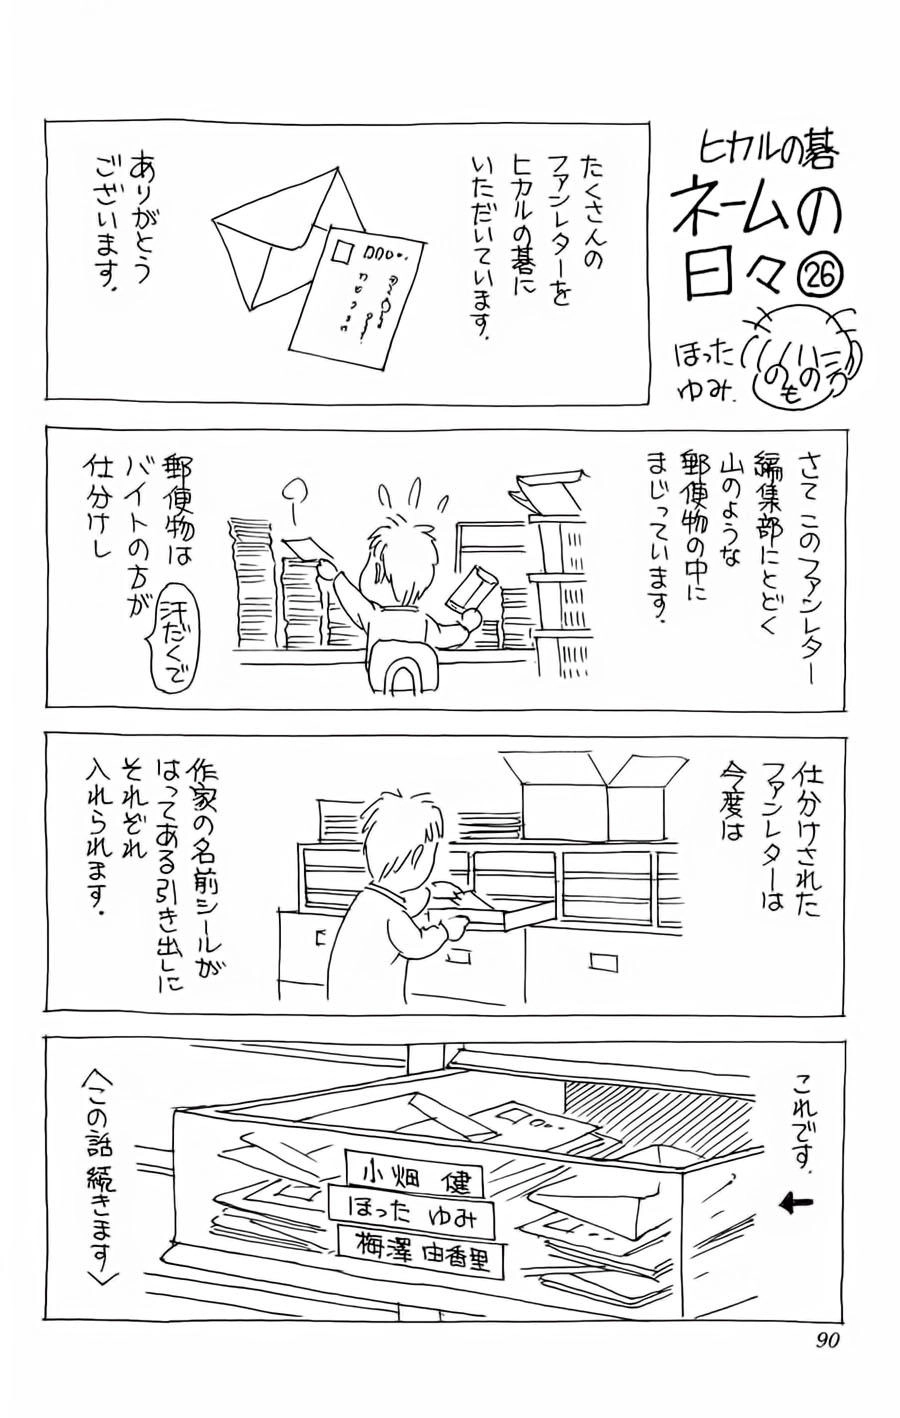 ヒカルの碁
ネームの
日々㉖
ほった
ゆみ.
たくさんの
ファンレターを
ヒカルの碁に
いただいています.
ありがとう
ございます.
さてこのファンレター
編集部にとどく
山のような
郵便物の中に
まじっています.
郵便物は
バイトの方が
汗だくで
仕分けし
仕分けされた
ファンレターは
今度は
作家の名前シールが
はってある引き出しに
それぞれ
入れられます.
これです.
小畑 健
ほった ゆみ
梅澤 由香里
〈この話 続きます〉
90